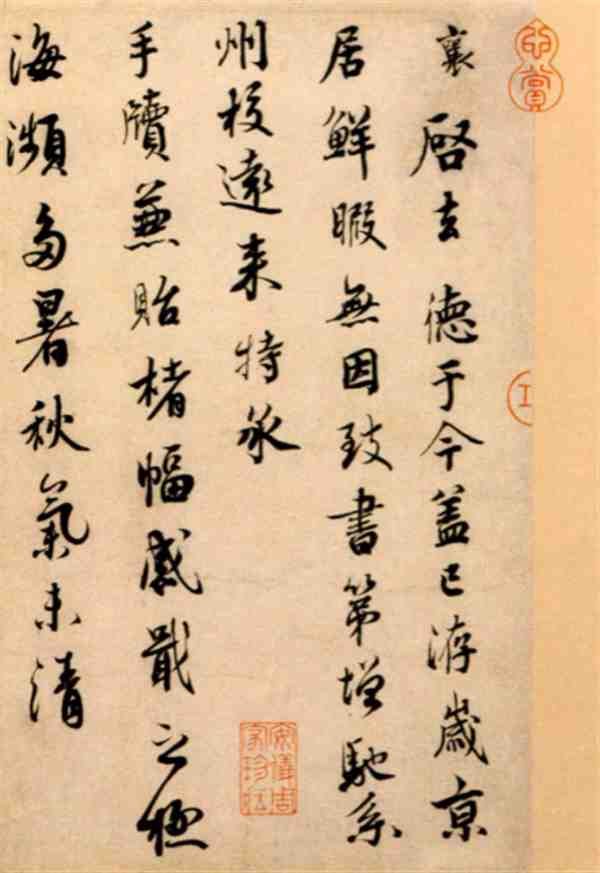 襄啓去德于今蓋已洊歲京
居鮮暇無因致書第增馳系
州校遠来特承
手牘兼貽楮幅感戢之極
海瀕多暑秋氣未清
心賞
安儀周家珍藏